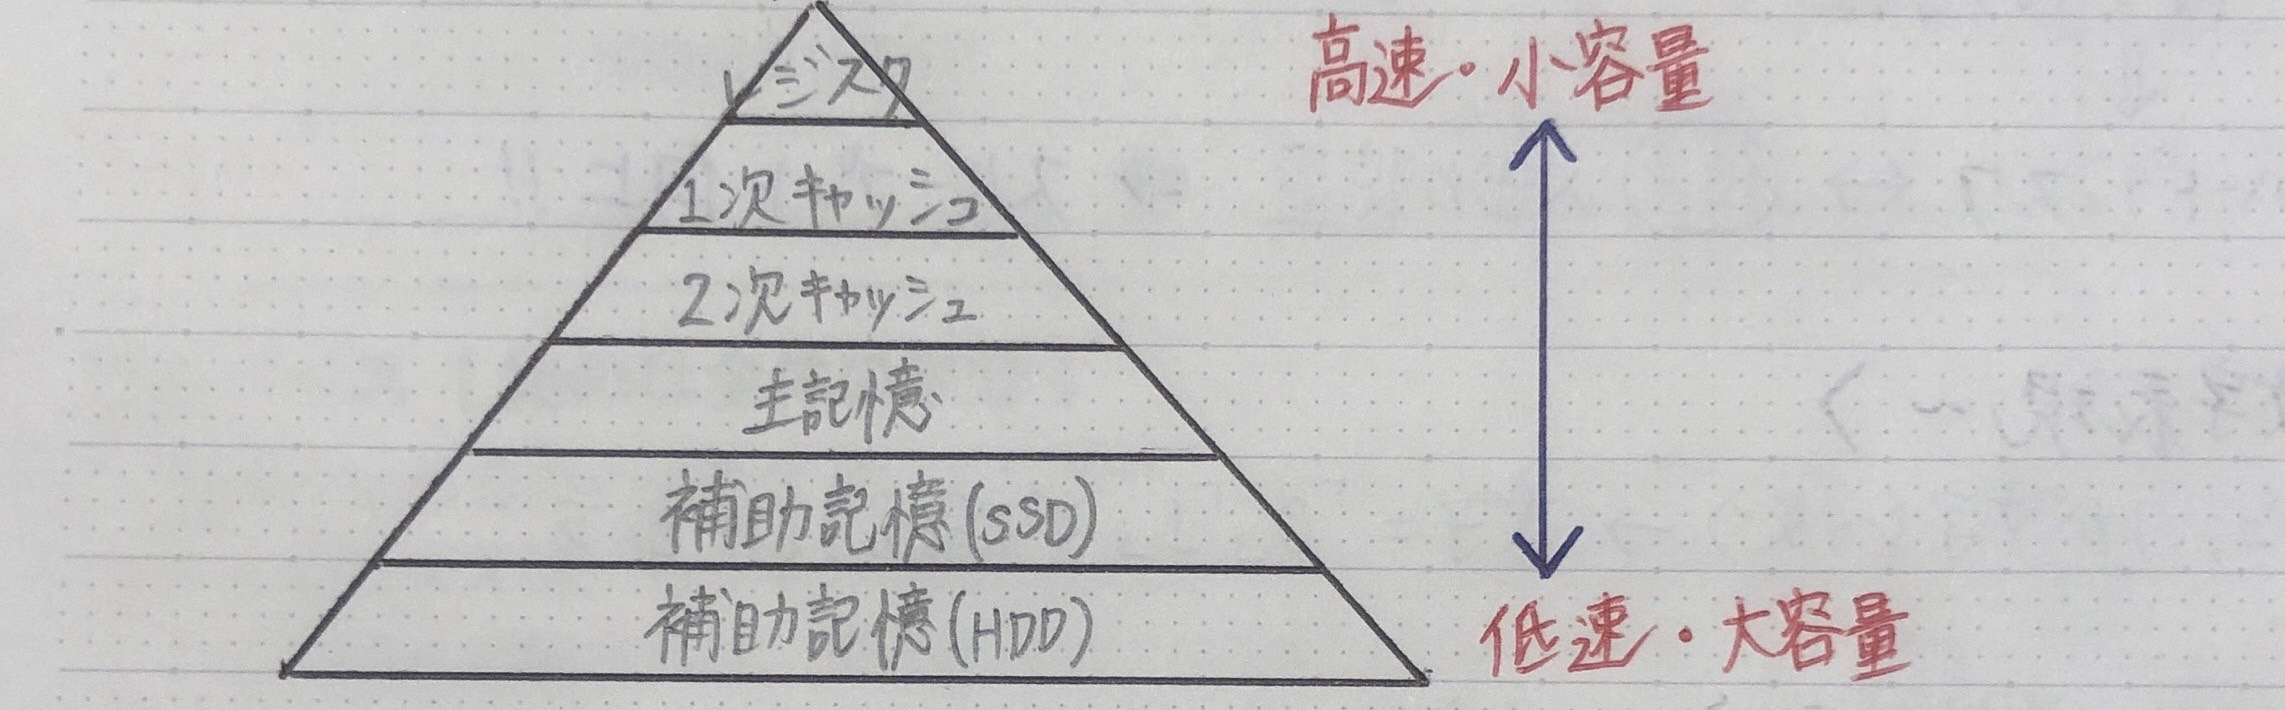 レジスタ
高速・小容量
1次キャッシュ
2次キャッシュ
主記憶
補助記憶(SSD)
補助記憶(HDD)
低速・大容量